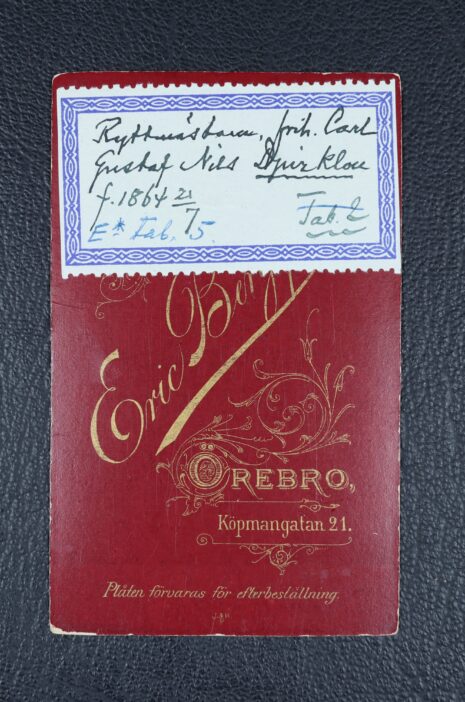 Ryttmästaren, frih. Carl
Gustaf Nils Djurklou
f. 1864 21/7
E* Tab. 5. Tab. 2
Eric
ÖREBRO,
Köpmangatan 21.
Plåten förvaras för efterbeställning.